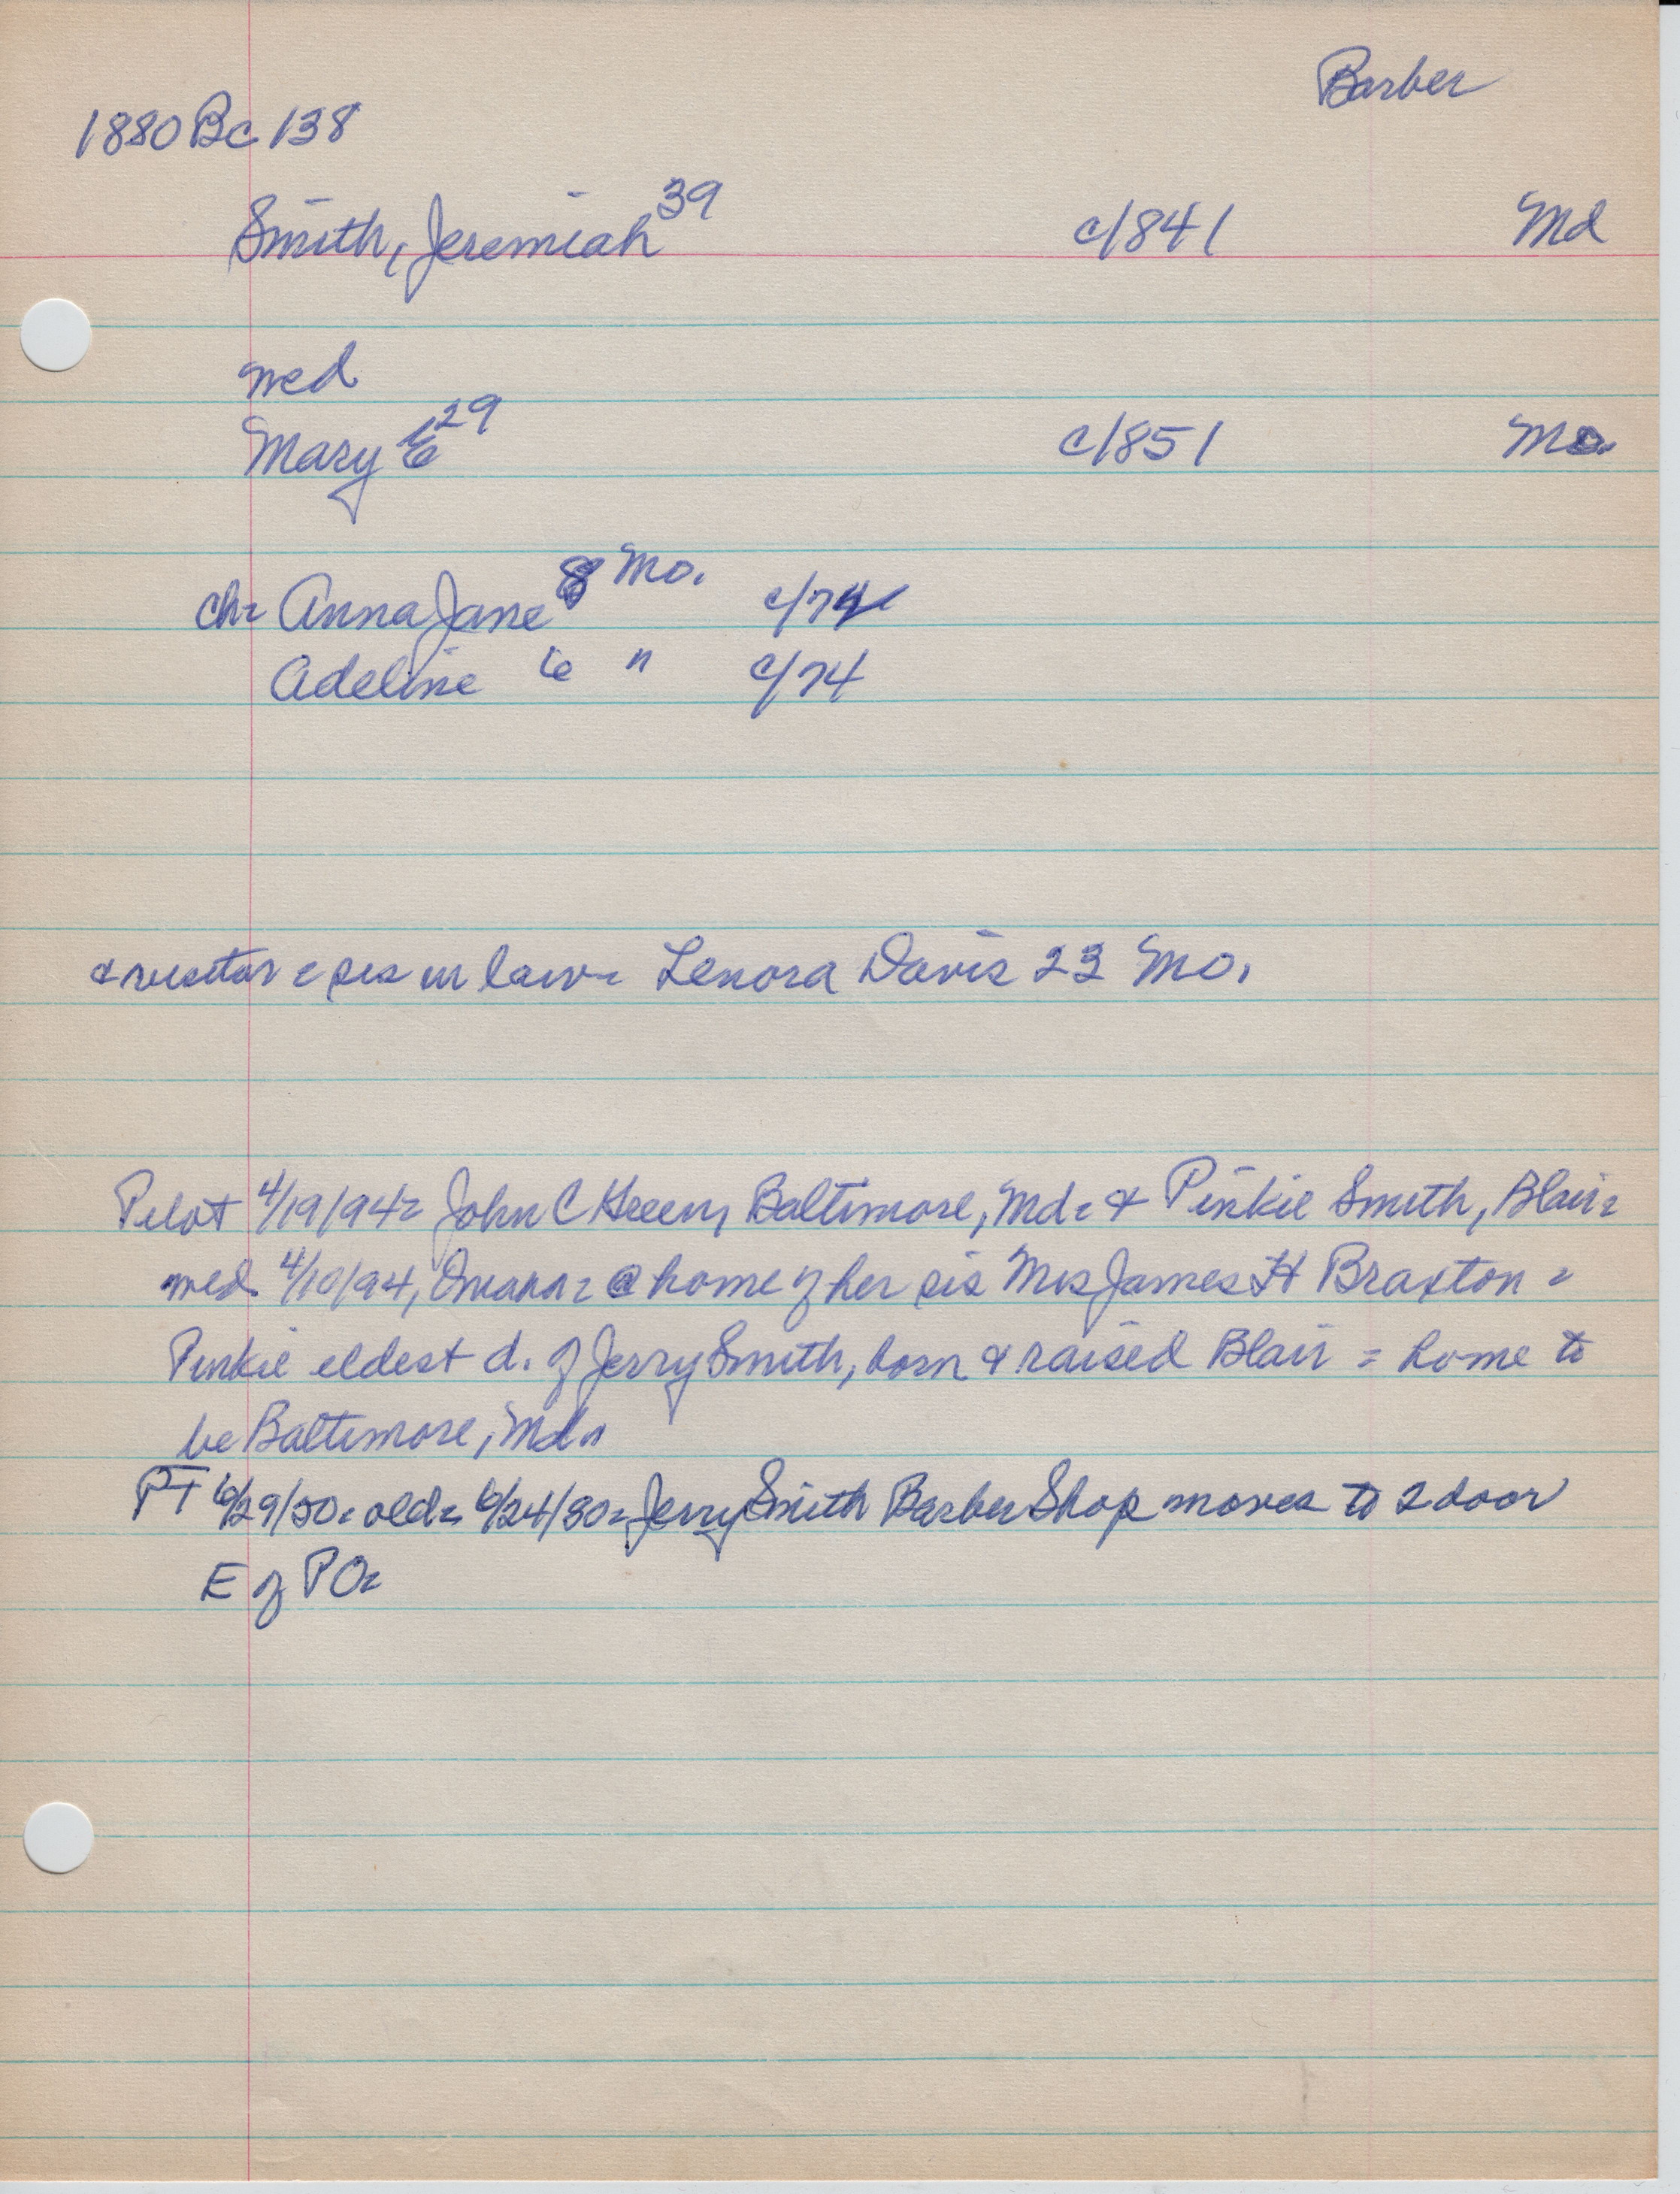 Barber
1880 Bc 138
Smith, Jeremiah 39 c/1841 Md
wed
Mary E 29 c/1851 Mo.
ch= Anna Jane 8 Mo. c/72
Adeline 6 " c/74
& visitor = sis in law= Lenora Davis 23 Mo.
Pilot 4/19/94= John C Baltimore, Md= & Pinkie Smith, Blair=
wed 4/10/94, Omaha= @ home of her sis Mrs James H Braxton =
Pinkie eldest d. of Jerry Smith, born & raised Blair = home to
be Baltimore, Md=
PT 6/29/50= old= 6/24/80= Jerry Smith Barber Shop moves to 2 door
E of PO=